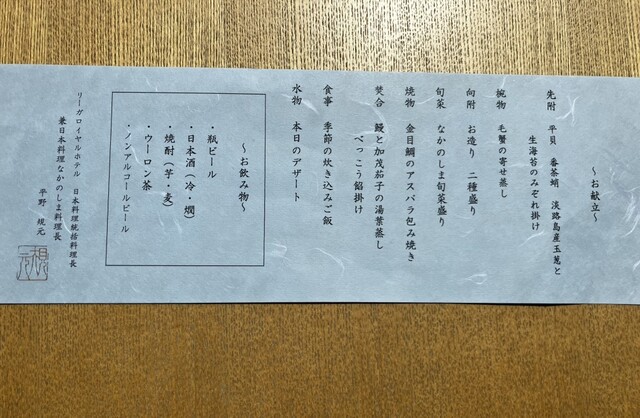 ～お献立～
先附 平貝 番茶蛸 淡路島産玉葱と
生海苔のみぞれ掛け
椀物 毛蟹の寄せ蒸し
向附 お造り 二種盛り
旬菜 なかのしま旬菜盛り
焼物 金目鯛のアスパラ包み焼き
焚合 鰻と加茂茄子の湯葉蒸し
べっこう餡掛け
食事 季節の炊き込みご飯
水物 本日のデザート
～お飲み物～
・瓶ビール
・日本酒（冷・燗）
・焼酎（芋・麦）
・ウーロン茶
・ノンアルコールビール
リーガロイヤルホテル 日本料理統括料理長
兼日本料理なかのしま料理長
平野 規元